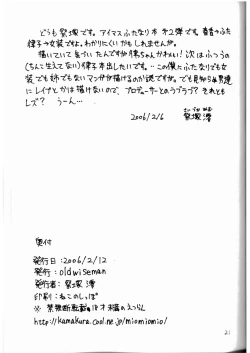 どうも犀塚です。アイマスふたなり本第2弾です。春香ふた
律子女装です。わかりにくいかもしれませんが。
描いていて気づいたんですが律ちゃんかわいい！次はふつうの
(ちんこ生えてない)律子本出したいです。…この僕にふたなりでも女
装でも姉でもないマンガが描けるのか謎ですが。でも見知らぬ男達
にレイプとかは描けないので、プロデューサーとのラブラブ？それとも
レズ？ うーん…
2006/2/6
澪
奥付
発行日:2006/2/12
発行:oldwiseman
発行者: 澪
印刷:ねこのしっぽ
※禁無断転載&18才未満のえつらん
http://kamakura.cool.ne.jp/miomiomio/
21